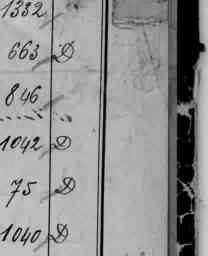 1332
663 D
846
1042 D
75 D
1040 D